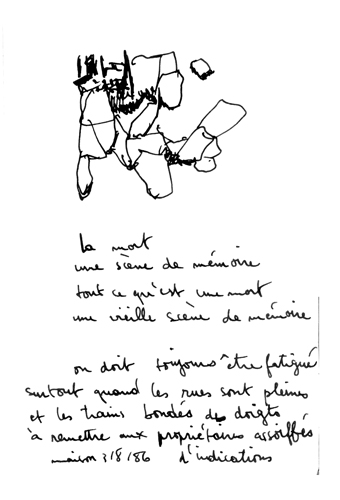 la mort
une scène de mémoire
tout ce qu'est une mort
une vieille scène de mémoire
on doit toujours être fatigué
surtout quand les rues sont pleines
et les trains bondés de doigts
à remettre aux propriétaires assoiffés
d'indications
maison 3/8/86